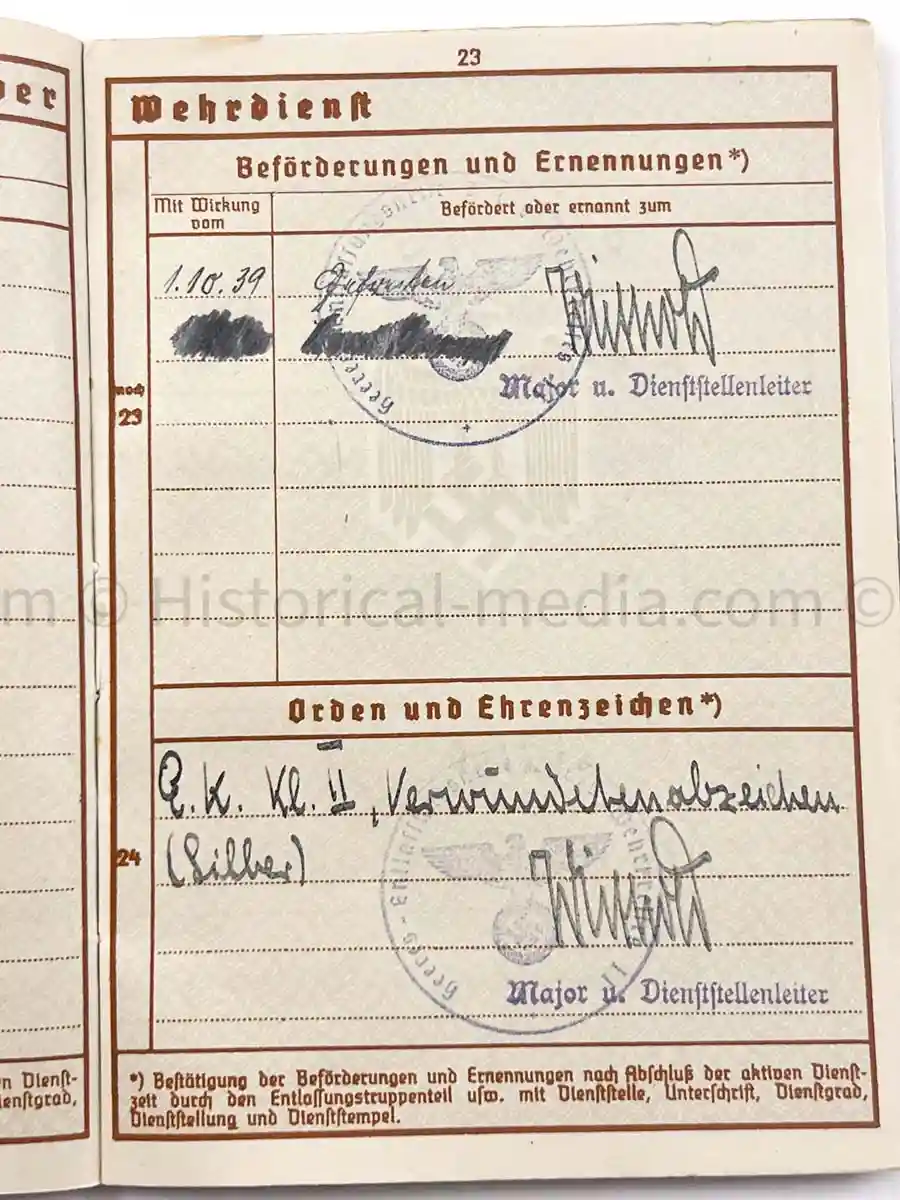 23
ber
Wehrdienst
Beförderungen und Ernennungen*)
Mit Wirkung vom
Befördert oder ernannt zum
1.10.39 Gefreiten
Major u. Dienststellenleiter
noch
23
om © Historical-media.com ©
Orden und Ehrenzeichen*)
E.K. Kl. II, Verwundetenabzeichen
24
(Silber)
Heeres-Entlassungs
Major u. Dienststellenleiter
n Dienst-
ienstgrad,
*) Bestätigung der Beförderungen und Ernennungen nach Abschluß der aktiven Dienst-
zeit durch den Entlassungstruppenteil usw. mit Dienststelle, Unterschrift, Dienstgrad,
Dienststellung und Dienststempel.